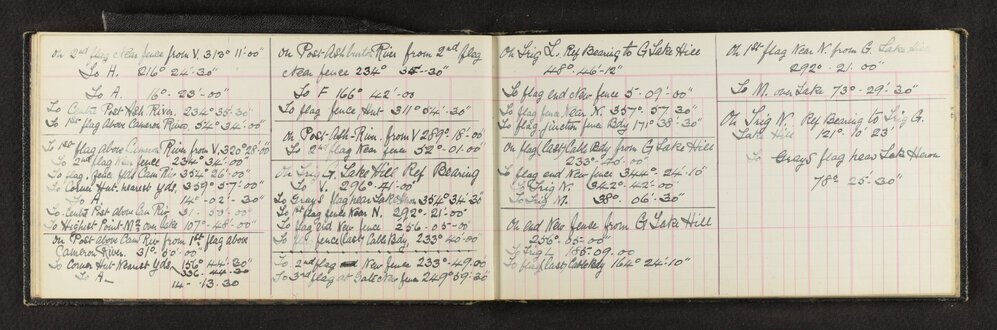 On 2nd flag New fence from V. 313° 11'00"
To H. 216° 24'.30"
To A. 16°.23'.00"
To Centre Post Ash. River. 234°.35'.30"
To 1st flag above Cameron River, 54°.34'.00"
To 1st flag above Cameron River from V, 320°28'00"
To 2nd flag New fence 234°34'.00"
To flag, fence Yds Cam Riv 354°26'.00"
To Corner Hut nearest Yds. 359°.57'.00"
To A 14°-02'.-30"
To Centre Post above Cam Riv 31-.50'.00"
To Highest Point Mt over lake 107°-48'-00"
On Post above Cam Riv from 1st flag above
Cameron River. 31°.50'.00"
To Corner Hut Nearest Yds, 156° 44'.30"
336.44.30
To A- 14-.13.30
On Post Ashburton River from 2nd flag
New fence 234° 35'-30"
To F 166° 42'-00
To flag fence Hut 311° 54'-30"
On Post-Ash-Riv. from V 289° 18'-00
To 2nd flag New fence 52°-01.00"
On Trig G. Lake Hill Ref Bearing
To V. 296°-41-00"
To Grays flag near Lake Heron 354°34'.30
To 1st flag fence Near N. 292°-21-00"
To flag end New fence 256-05-00
To flag fence East Cabb Bdy. 233°40'00"
To 2nd flag New fence 233°-49.00
To 3rd flag at Gate New fence 249°59'.30
On Trig L. Ref Bearing to G Lake Hill
48°.46'-12"
To flag end New fence 5-09'-00"
To flag fence Near N. 357°.57'.30
To flag junction fence Bdy 171° 38'.30"
On flag East Cabb Bdy from G Lake Hill
233°-40'.00"
To flag end New fence 344°.24'.10
To Trig N. 342°-42'.00"
To Trig M. 38° 06'.30
On end New fence from G Lake Hill
256°.05'-00
To Trig L 185-09.00
To flag East Cabb Bdy 164°24'.10"
On 1st flag Near N. from G. Lake Hill
292°-21.00"
To M. over Lake 73°-29'.30
On Trig N. Ref Bearing to Trig G.
Lake Hill 121° 10' 23'
To Grays flag near Lake Heron
78° 25'-30"